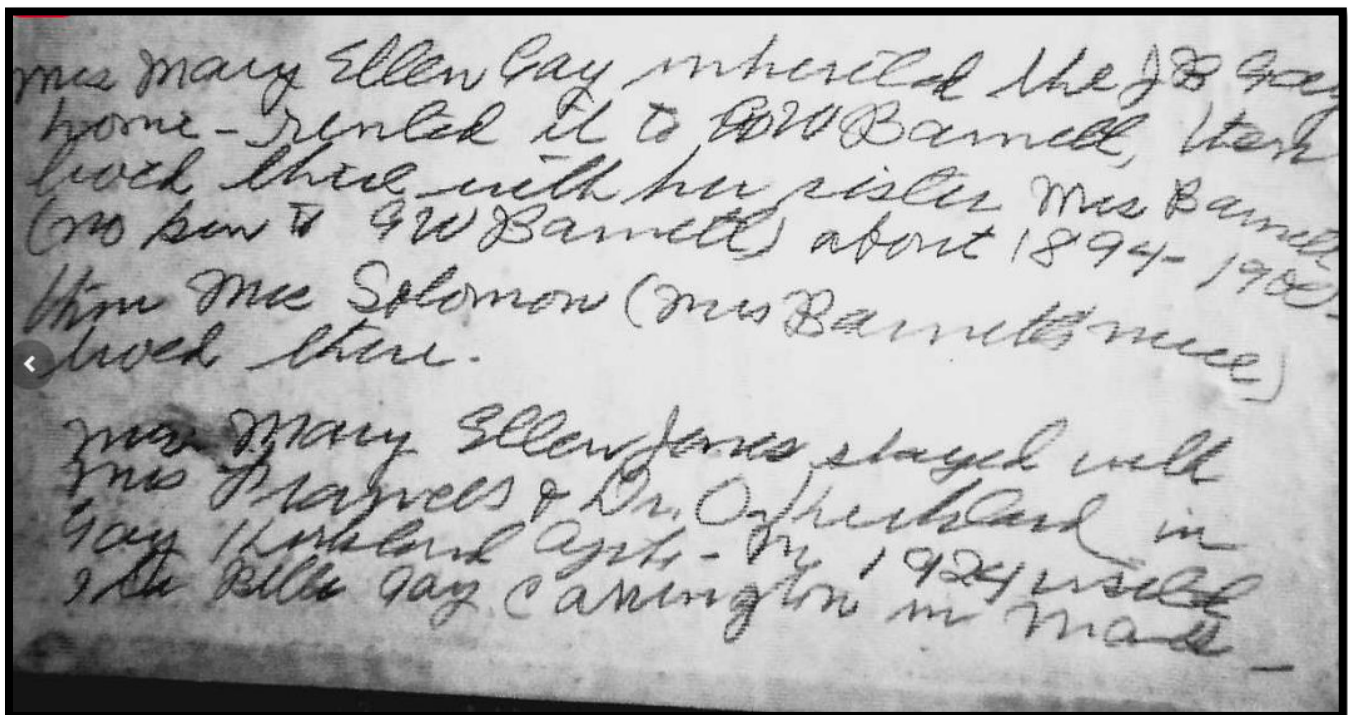 Mrs Mary Ellen Gay inherited the J B Gay
home - rented it to GW Barnett, then
lived there with her sister Mrs Barnett
(no kin to GW Barnett) about 1894-1900.
Then Mrs Solomon (Mrs Barnett's niece)
lived there.
Mrs Mary Ellen Jones stayed with
Mrs Frances & Dr. O Kirkland in
Gay Kirkland Apts - In 1924 visited
Ida Belle Gay Carrington in